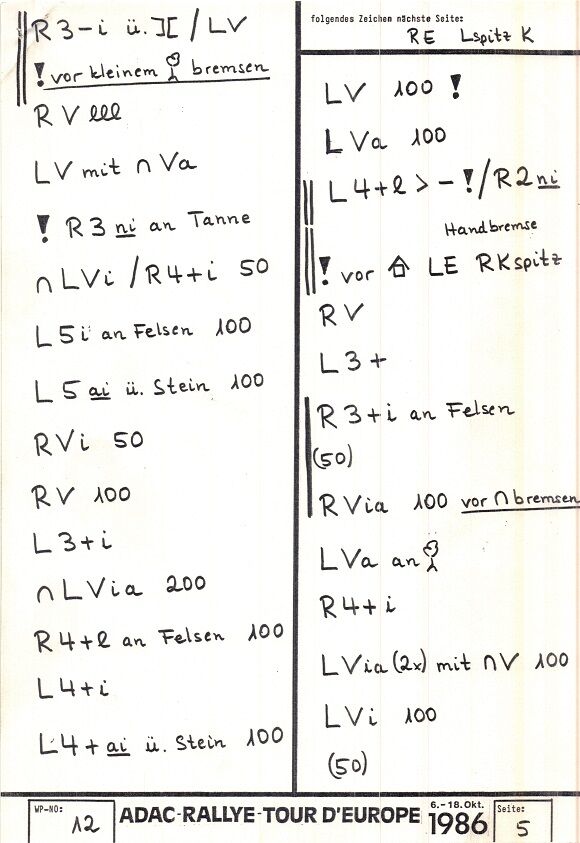 R 3 - i ü. ][ / LV
! vor kleinem bremsen
R V lll
LV mit ∩ Va
! R 3 ni an Tanne
∩ LVi / R4+i 50
L 5 i an Felsen 100
L 5 ai ü. Stein 100
RVi 50
RV 100
L3+i
∩ LVia 200
R4+l an Felsen 100
L4+i
L4+ ai ü. Stein 100
folgendes Zeichen nächste Seite:
RE Lspitz K
LV 100 !
LVa 100
L4+l > - ! / R2 ni
Handbremse
! vor ⌂ LE RKspitz
RV
L3+
R3+i an Felsen
(50)
RVia 100 vor ∩ bremsen
LVa an
R4+i
LVia (2x) mit ∩V 100
LVi 100
(50)
WP-NO: 12
ADAC-RALLYE-TOUR D'EUROPE 6.-18.Okt. 1986
Seite: 5